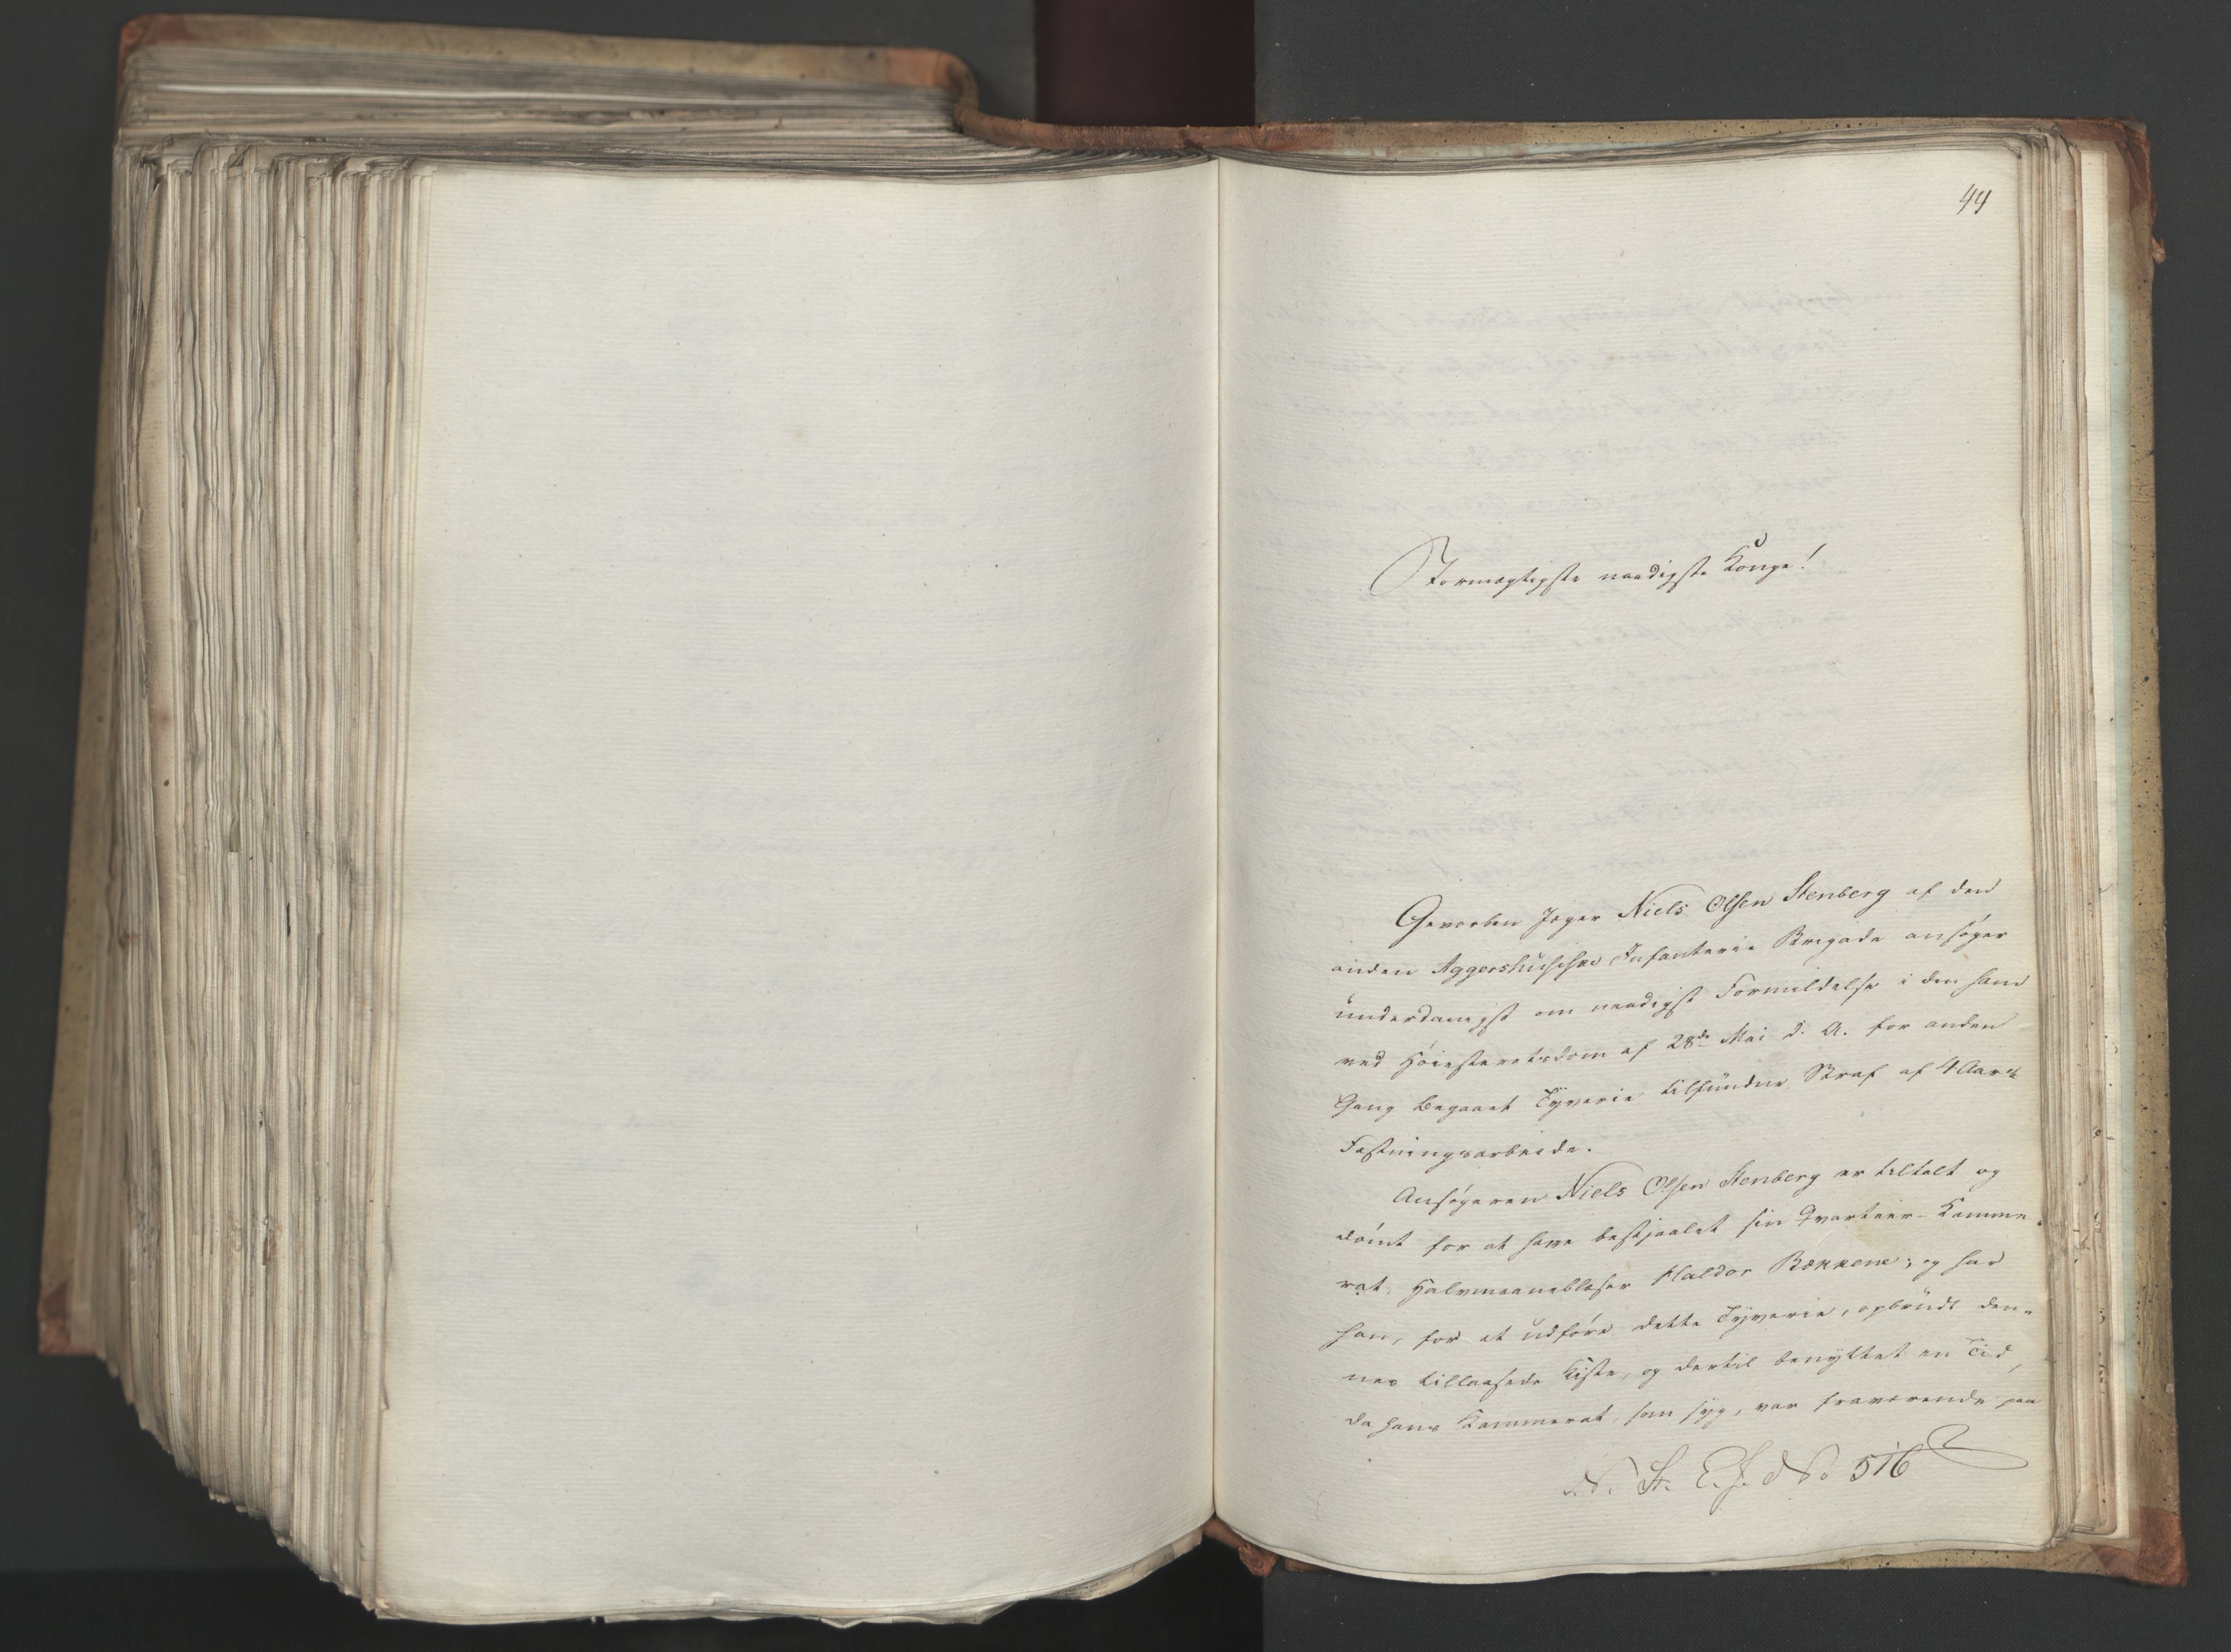 44
Stormægtigste naadigste Konge!
Gevorben Jæger Niels Olsen Stenberg af den
anden Aggershusiske Infanterie Brigade ansøger
underdanigst om naadigst Formildelse i den ham
ved Höiesteretsdom af 28de Mai d. A. for anden
Gang begaaet Tyverie tilfundne Straf af 4 Aars
Fæstningsarbeide.
Ansøgeren Niels Olsen Stenberg er tiltalt og
dömt for at have bestjaalet sin Qvarteer-Kamme-
rat, Halvmaaneblæser Haldor Bækkene; og har
han, for at udföre dette Tyverie, opbrudt den-
nes tillaasede Kiste, og dertil benyttet en Tid,
da hans Kammerat, som syg, var fraværende paa
N. St. E. J. No 516